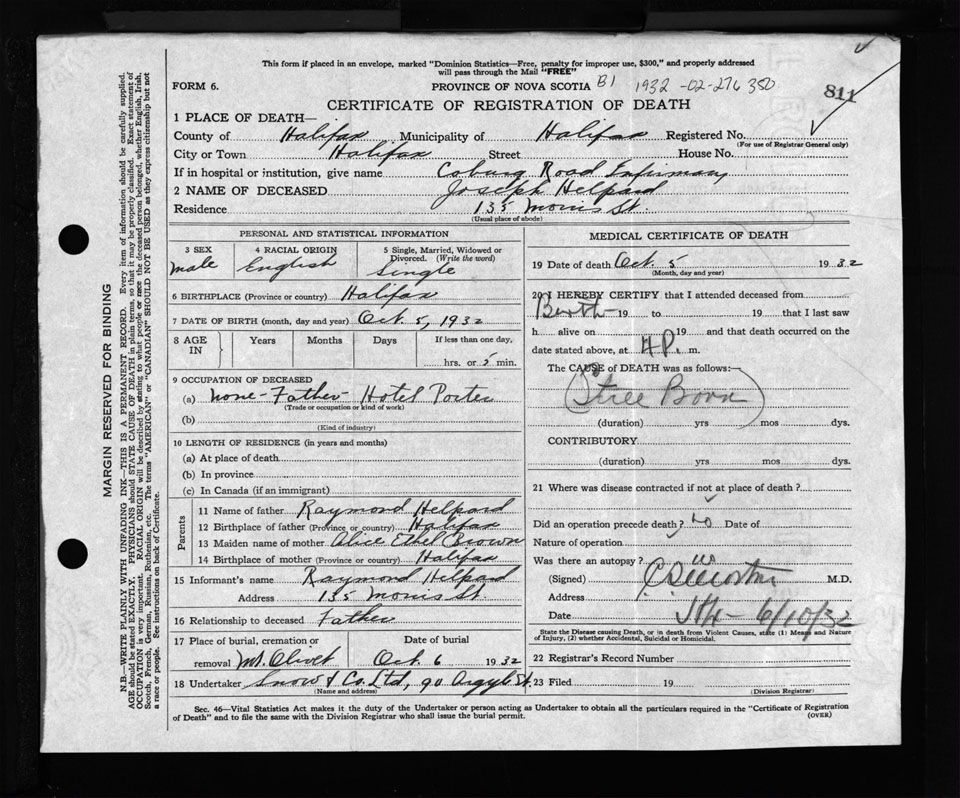 This form if placed in an envelope, marked "Dominion Statistics—Free, penalty for improper use, $300," and properly addressed
will pass through the Mail "FREE"
FORM 6. PROVINCE OF NOVA SCOTIA B1 1932-02-276350
811
CERTIFICATE OF REGISTRATION OF DEATH
1 PLACE OF DEATH—
County of Halifax Municipality of Halifax Registered No.
(For use of Registrar General only)
City or Town Halifax Street House No.
If in hospital or institution, give name Coburg Road Infirmary
2 NAME OF DECEASED Joseph Helpard
Residence 135 Morris St.
(Usual place of abode)
PERSONAL AND STATISTICAL INFORMATION
3 SEX 4 RACIAL ORIGIN 5 Single, Married, Widowed or
Divorced. (Write the word)
Male English Single
6 BIRTHPLACE (Province or country) Halifax
7 DATE OF BIRTH (month, day and year) Oct. 5, 1932
8 AGE IN Years Months Days If less than one day,
hrs. or 5 min.
9 OCCUPATION OF DECEASED
(a) None - Father - Hotel Porter
(Trade or occupation or kind of work)
(b)
(Kind of industry)
10 LENGTH OF RESIDENCE (in years and months)
(a) At place of death
(b) In province
(c) In Canada (if an immigrant)
Parents
11 Name of father Raymond Helpard
12 Birthplace of father (Province or country) Halifax
13 Maiden name of mother Alice Ethel Brown
14 Birthplace of mother (Province or country) Halifax
15 Informant's name Raymond Helpard
Address 135 Morris St.
16 Relationship to deceased Father
17 Place of burial, cremation or Date of burial
removal Mt. Olivet Oct. 6 1932
18 Undertaker Snow & Co. Ltd, 90 Argyle St.
(Name and address)
MEDICAL CERTIFICATE OF DEATH
19 Date of death Oct. 5 1932
(Month, day and year)
20 I HEREBY CERTIFY that I attended deceased from
Birth 19 to 19 that I last saw
h alive on 19 and that death occurred on
date stated above, at 4 P. m.
The CAUSE of DEATH was as follows:—
(Still Born)
(duration) yrs mos dys.
CONTRIBUTORY
(duration) yrs mos dys.
21 Where was disease contracted if not at place of death?
Did an operation precede death? No Date of
Nature of operation
Was there an autopsy? No
(Signed) M.D.
Address
Date 6/10/32
State the Disease causing Death, or in death from Violent Causes, state (1) Means and Nature
of Injury, (2) whether Accidental, Suicidal or Homicidal.
22 Registrar's Record Number
23 Filed 19
(Division Registrar)
Sec. 46—Vital Statistics Act makes it the duty of the Undertaker or person acting as Undertaker to obtain all the particulars required in the "Certificate of Registration
of Death" and to file the same with the Division Registrar who shall issue the burial permit. (OVER)
MARGIN RESERVED FOR BINDING
N.B.—WRITE PLAINLY WITH UNFADING INK—THIS IS A PERMANENT RECORD. Every item of information should be carefully supplied.
AGE should be stated EXACTLY. PHYSICIANS should STATE CAUSE OF DEATH in plain terms, so that it may be properly classified. Exact statement of
OCCUPATION is very important. RACIAL ORIGIN will be described by stating to what people or race the deceased person belonged, whether English, Irish,
Scotch, French, German, Russian, Ruthenian, etc. The terms "AMERICAN" or "CANADIAN" SHOULD NOT BE USED as they express citizenship but not
a race or people. See instructions on back of Certificate.